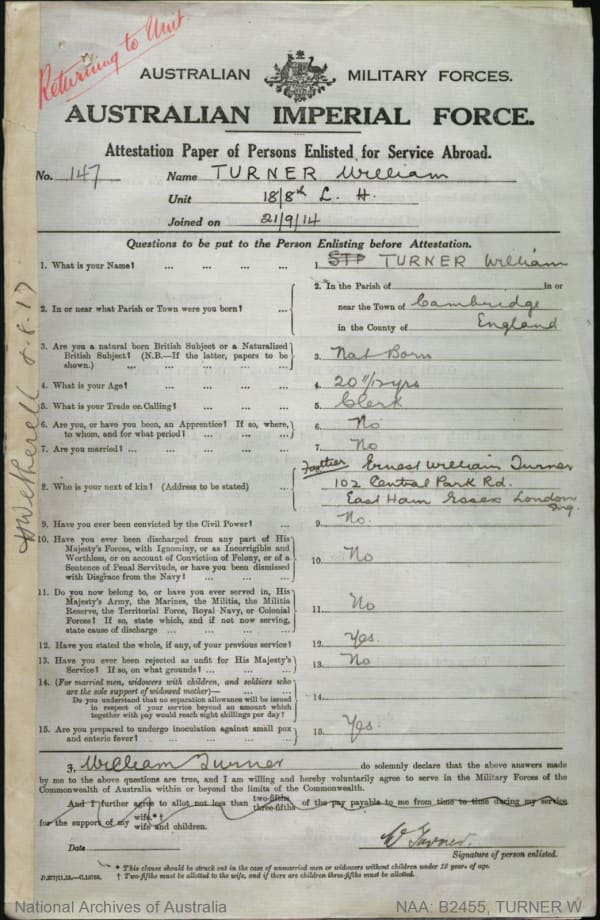 Returning to Unit.
AUSTRALIAN MILITARY FORCES.
AUSTRALIAN IMPERIAL FORCE.
Attestation Paper of Persons Enlisted for Service Abroad.
No. 147 Name TURNER William
Unit 18/8th L. H.
Joined on 21/9/14
Questions to be put to the Person Enlisting before Attestation.
1. What is your Name? ... ... ... ... 1. STP TURNER William
2. In or near what Parish or Town were you born? ... 2. In the Parish of in or
near the Town of Cambridge
in the County of England
3. Are you a natural born British Subject or a Naturalized
British Subject? (N.B.—If the latter, papers to be
shown.) ... ... ... ... 3. Nat Born
4. What is your Age? ... ... ... ... 4. 20 11/12 yrs
5. What is your Trade or Calling? ... ... ... 5. Clerk
6. Are you, or have you been, an Apprentice? If so, where,
to whom, and for what period? ... ... ... 6. No
7. Are you married? ... ... ... ... 7. No
8. Who is your next of kin? (Address to be stated) ... Father Ernest William Turner
102 Central Park Rd.
East Ham Essex London
Eng.
9. Have you ever been convicted by the Civil Power? ... 9. No.
10. Have you ever been discharged from any part of His
Majesty's Forces, with Ignominy, or as Incorrigible and
Worthless, or on account of Conviction of Felony, or of a
Sentence of Penal Servitude, or have you been dismissed
with Disgrace from the Navy? ... ... ... 10. No
11. Do you now belong to, or have you ever served in, His
Majesty's Army, the Marines, the Militia, the Militia
Reserve, the Territorial Force, Royal Navy, or Colonial
Forces? If so, state which, and if not now serving,
state cause of discharge ... ... ... ... 11. No
12. Have you stated the whole, if any, of your previous service? 12. Yes.
13. Have you ever been rejected as unfit for His Majesty's
Service? If so, on what grounds? ... ... ... 13. No
14. (For married men, widowers with children, and soldiers who
are the sole support of widowed mother)— ... ...
Do you understand that no separation allowance will be issued
in respect of your service beyond an amount which
together with pay would reach eight shillings per day? 14.
15. Are you prepared to undergo inoculation against small pox
and enteric fever? ... ... ... ... 15. Yes.
I, William Turner do solemnly declare that the above answers made
by me to the above questions are true, and I am willing and hereby voluntarily agree to serve in the Military Forces of the
Commonwealth of Australia within or beyond the limits of the Commonwealth.
And I further agree to allot not less than two-fifths three-fifths of the pay payable to me from time to time during my service
for the support of my wife.*† wife and children.
Date W Turner.
Signature of person enlisted.
* This clause should be struck out in the case of unmarried men or widowers without children under 18 years of age.
† Two-fifths must be allotted to the wife, and if there are children three-fifths must be allotted.
National Archives of Australia NAA: B2455, TURNER W